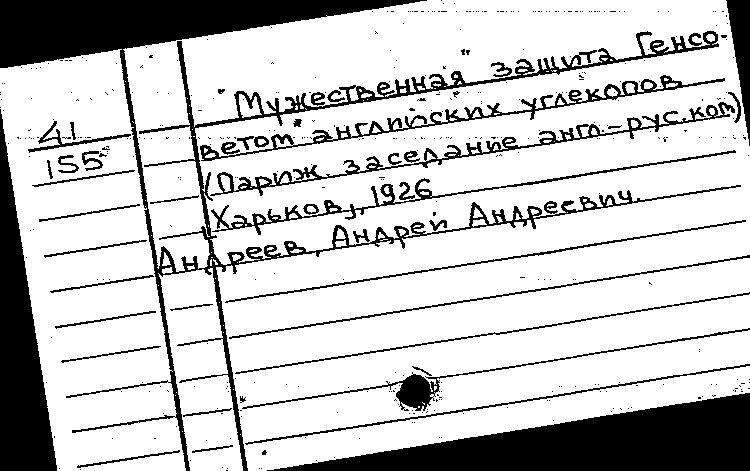 "Мужественная" защита Генсо-
41
ветом" английских углекопов
155
(Париж. заседание англ-рус.ком)
Харьков, 1926
Андреев, Андрей Андреевич.